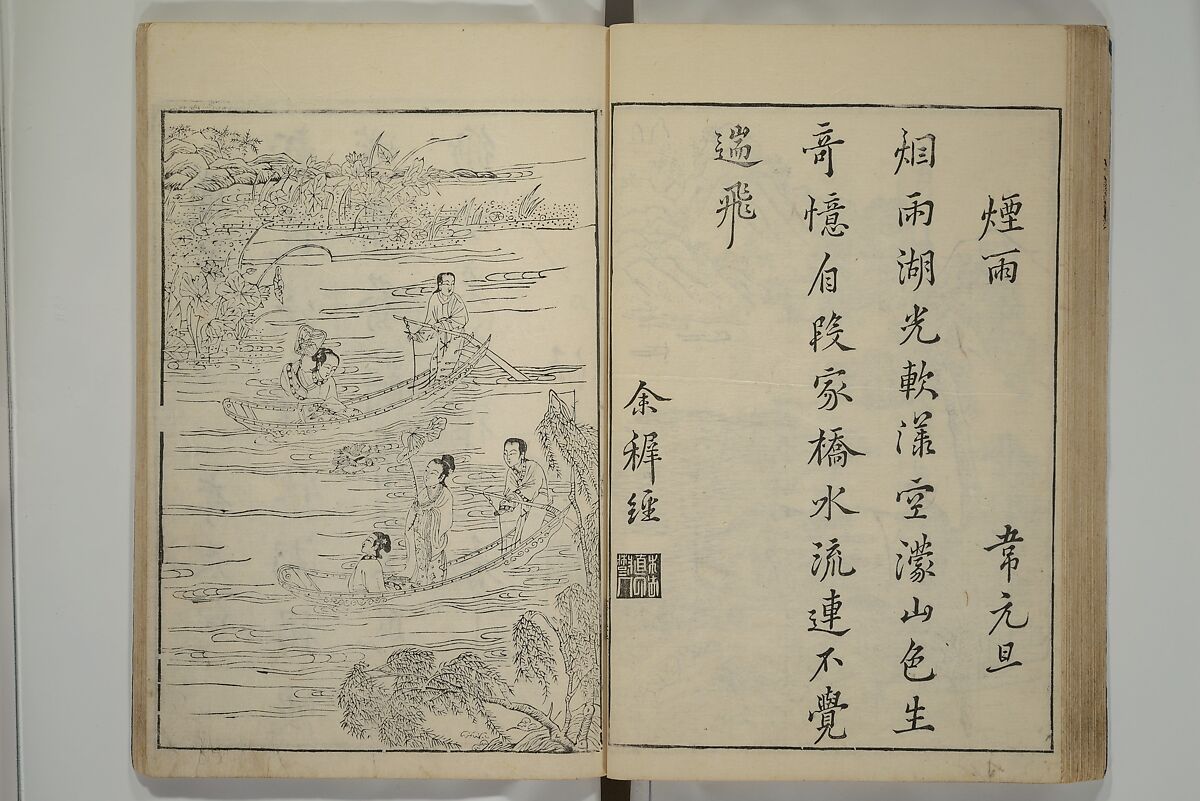 煙雨 韋元旦
烟雨湖光軟漾空濛山色生
竒憶自段家橋水流連不覺
遄飛
余稺